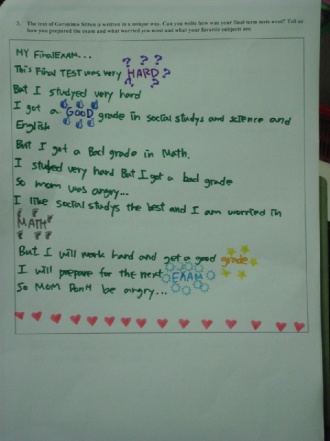 3. The text of Geronimo Stilton is written in a unique way. Can you write how was your final term tests went? Tell us
how you prepared the exam and what worried you most and what your favorite subjects are.
MY Final EXAM...
This Final TEST was very HARD
? ? ? ? ? ? ?
But I studyed very hard
I got a GOOD grade in social studys and science and
English
But I got a Bad grade in Math.
I studied very hard But I got a bad grade
So mom was angry...
I like social studys the best and I am worried in
MATH
But I will work hard and get a good grade
I will prepare for the next EXAM
So MOM Don't be angry...